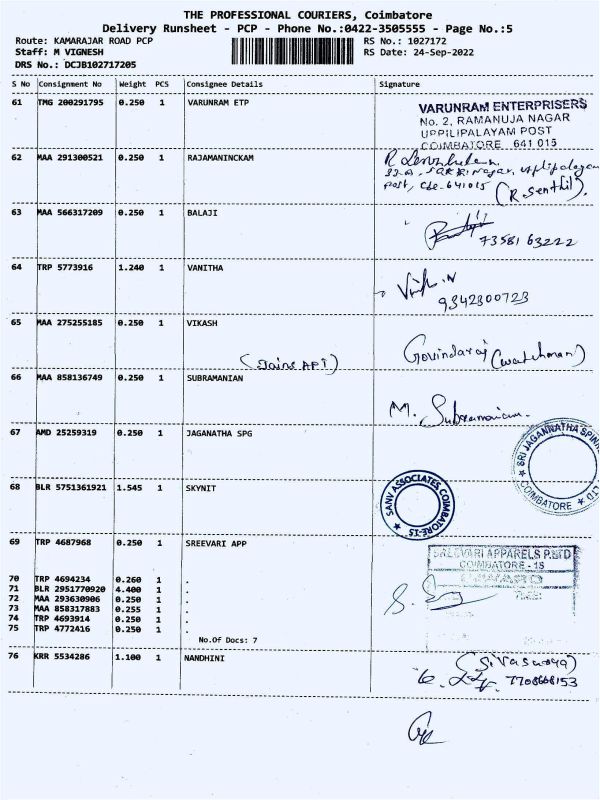 THE PROFESSIONAL COURIERS, Coimbatore
Delivery Runsheet - PCP - Phone No.:0422-3505555 - Page No.:5
Route: KAMARAJAR ROAD PCP RS No.: 1027172
Staff: M VIGNESH RS Date: 24-Sep-2022
DRS No.: DCJB102717205
S No Consignment No Weight PCS Consignee Details Signature
61 TMG 200291795 0.250 1 VARUNRAM ETP
VARUNRAM ENTERPRISERS
No. 2, RAMANUJA NAGAR
UPPILIPALAYAM POST
COIMBATORE 641 015
62 MAA 291300521 0.250 1 RAJAMANINCKAM
Post, Cbe-641015 (R. Senthil).
63 MAA 566317209 0.250 1 BALAJI
73581 63222
64 TRP 5773916 1.240 1 VANITHA
9342300723
65 MAA 275255185 0.250 1 VIKASH
(Jains APT) Govindaraj (watchman)
66 MAA 858136749 0.250 1 SUBRAMANIAN
M. Subramaniam.
67 AMD 25259319 0.250 1 JAGANATHA SPG
SRI JAGANNATHA SPINN
LTD
COIMBATORE
68 BLR 5751361921 1.545 1 SKYNIT
SANV ASSOCIATES COIMBATORE-15
69 TRP 4687968 0.250 1 SREEVARI APP
SREEVARI APPARELS P.LTD
COIMBATORE - 15
INWARD
70 TRP 4694234 0.260 1 .
71 BLR 2951770920 4.400 1 .
72 MAA 293630906 0.250 1 .
73 MAA 858317883 0.255 1 .
74 TRP 4693914 0.250 1 .
75 TRP 4772416 0.250 1 .
No.Of Docs: 7
76 KRR 5534286 1.100 1 NANDHINI
(Sivasurya)
7708668153